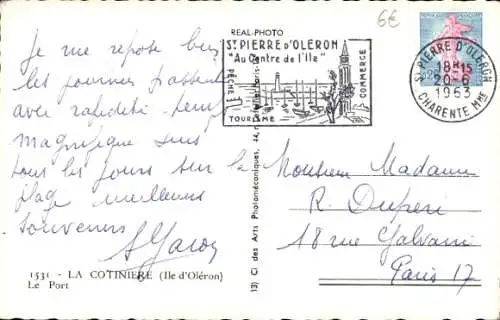 6€
REAL-PHOTO
St PIERRE D'OLERON
"Au Centre de l'Ile"
PÊCHE
COMMERCE
TOURISME
St PIERRE D'OLERON
18H15
20-6
1963
CHARENTE Mme
Je me repose bien
les journées passent
avec rapidité. Temps
magnifique suis
tous les jours sur la
plage meilleurs
souvenirs
Monsieur Madame
R. Duperi
61 Rue Galvani
Paris 17
1531 - LA COTINIERE (Ile d'Oléron)
Le Port
Cl des Arts Photomécaniques, 44,